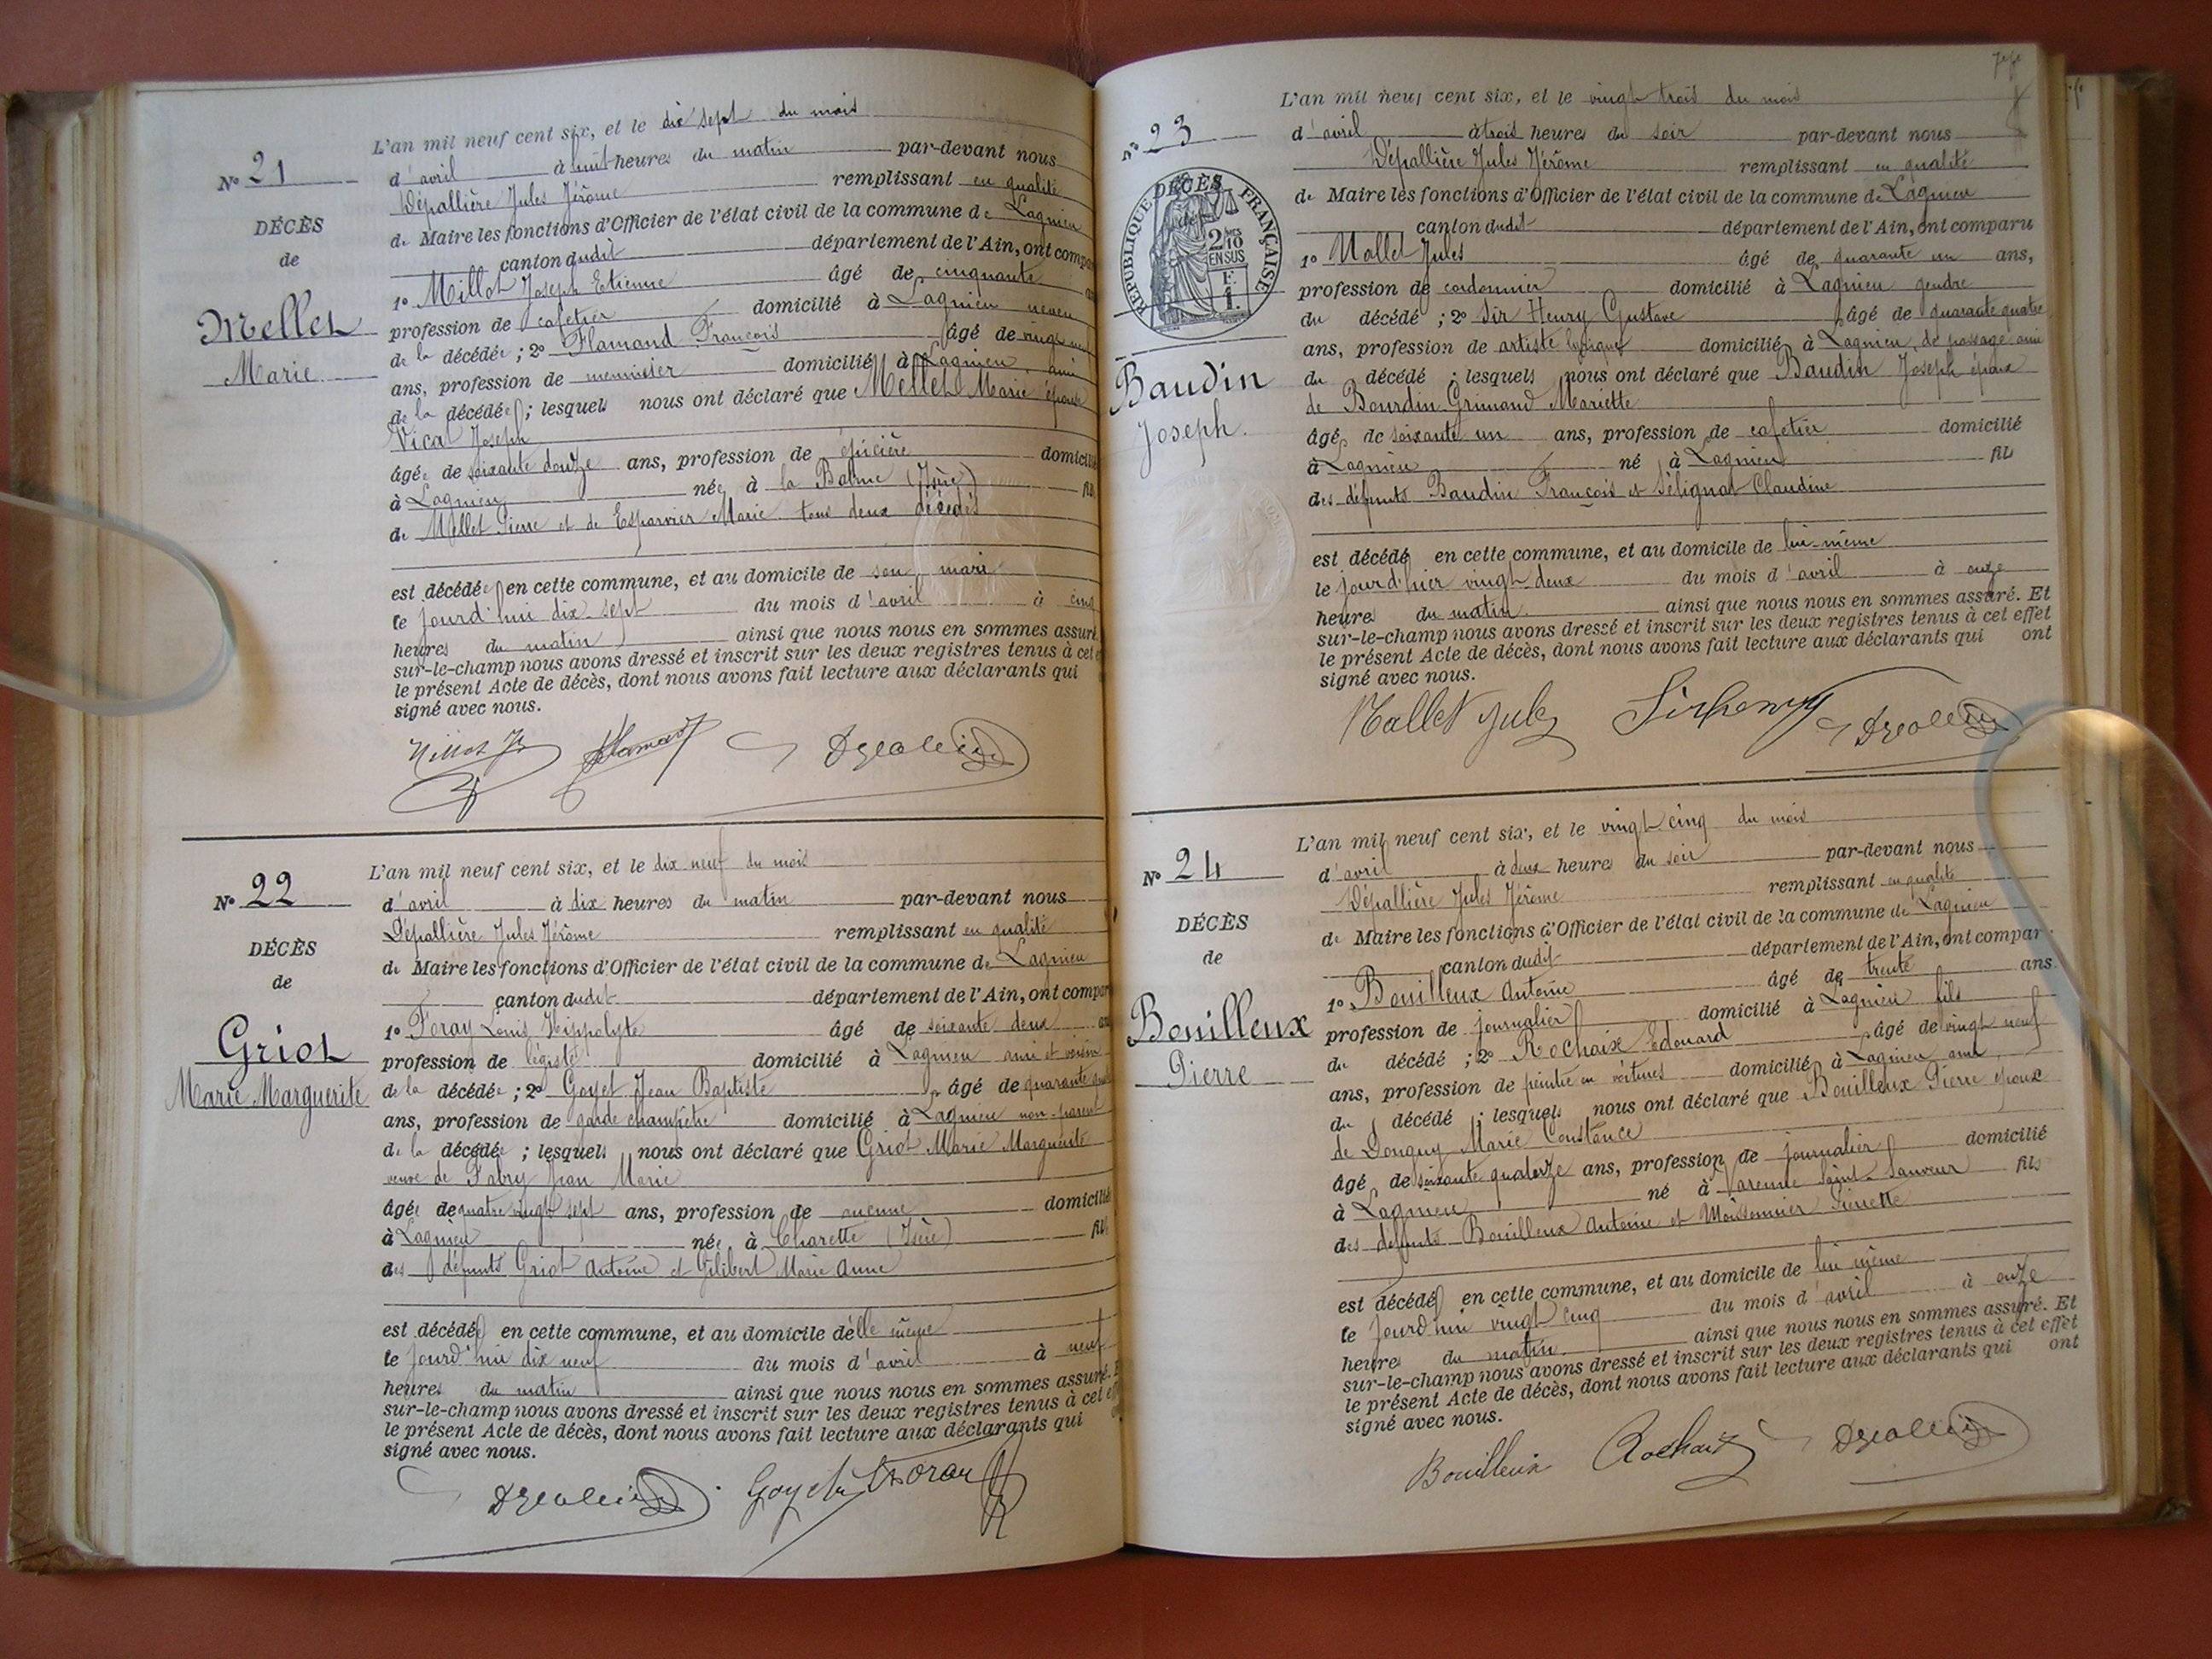 Nº 21
DÉCÈS
de
Mellet
Marie
L'an mil neuf cent six, et le dix sept du mois
d'avril à huit heures du matin par-devant nous
Dépallière Jules Jérôme remplissant en qualité
de Maire les fonctions d'Officier de l'état civil de la commune de Lagnieu
canton dudit département de l'Ain, ont compar
1º Millot Joseph Etienne âgé de cinquante
profession de cafetier domicilié à Lagnieu neveu
de la décédée ; 2º Flamand François âgé de vingt neuf
ans, profession de menuisier domicilié à Lagnieu, ami
de la décédée ; lesquels nous ont déclaré que Mellet Marie épouse
Vicat Joseph
âgée de soixante douze ans, profession de épicière domicilié
à Lagnieu née à la Balme (Isère) fille
de Mellet Pierre et de Esparvier Marie tous deux décédés
est décédée en cette commune, et au domicile de son mari
le jourd'hui dix-sept du mois d'avril à cinq
heures du matin ainsi que nous nous en sommes assuré.
sur-le-champ nous avons dressé et inscrit sur les deux registres tenus à cet
le présent Acte de décès, dont nous avons fait lecture aux déclarants qui
signé avec nous.
Nº 22
DÉCÈS
de
Griot
Marie Marguerite
L'an mil neuf cent six, et le dix neuf du mois
d'avril à dix heures du matin par-devant nous
Dépallière Jules Jérôme remplissant en qualité
de Maire les fonctions d'Officier de l'état civil de la commune de Lagnieu
canton dudit département de l'Ain, ont compar
1º Foray Louis Hippolyte âgé de soixante deux ans
profession de légiste domicilié à Lagnieu ami et voisin
de la décédée ; 2º Goyet Jean Baptiste âgé de quarante
ans, profession de garde champêtre domicilié à Lagnieu non-parent
de la décédée ; lesquels nous ont déclaré que Griot Marie Marguerite
veuve de Fabry Jean Marie
âgée de quatre vingt sept ans, profession de aucune domicilié
à Lagnieu née à Charette (Isère) fille
des défunts Griot Antoine et Gilibert Marie Anne
est décédée en cette commune, et au domicile d'elle même
le jourd'hui dix neuf du mois d'avril à neuf
heures du matin ainsi que nous nous en sommes assuré.
sur-le-champ nous avons dressé et inscrit sur les deux registres tenus à cet
le présent Acte de décès, dont nous avons fait lecture aux déclarants qui
signé avec nous.
Goyet Foray
Nº 23
DÉCÈS
de
RÉPUBLIQUE FRANÇAISE
2/10 EN SUS
Baudin
Joseph.
L'an mil neuf cent six, et le vingt trois du mois
d'avril à trois heures du soir par-devant nous
Dépallière Jules Jérôme remplissant en qualité
de Maire les fonctions d'Officier de l'état civil de la commune de Lagnieu
canton dudit département de l'Ain, ont comparu
1º Mallet Jules âgé de quarante un ans,
profession de cordonnier domicilié à Lagnieu gendre
du décédé ; 2º Sir Henry Gustave âgé de quarante quatre
ans, profession de artiste lyrique domicilié à Lagnieu, de passage ami
du décédé ; lesquels nous ont déclaré que Baudin Joseph époux
de Bourdin Grimaud Mariette
âgé de soixante un ans, profession de cafetier domicilié
à Lagnieu né à Lagnieu fils
des défunts Baudin François et Sélignat Claudine
est décédé en cette commune, et au domicile de lui-même
le jourd'hier vingt deux du mois d'avril à onze
heures du matin. ainsi que nous nous en sommes assuré. Et
sur-le-champ nous avons dressé et inscrit sur les deux registres tenus à cet effet
le présent Acte de décès, dont nous avons fait lecture aux déclarants qui ont
signé avec nous.
Mallet Jules Sirhenry
Nº 24
DÉCÈS
de
Bouilleux
Pierre
L'an mil neuf cent six, et le vingt cinq du mois
d'avril à deux heures du soir par-devant nous
Dépallière Jules Jérôme remplissant en qualité
de Maire les fonctions d'Officier de l'état civil de la commune de Lagnieu
canton dudit département de l'Ain, ont compar
1º Bouilleux Antoine âgé de trente ans
profession de journalier domicilié à Lagnieu fils
du décédé ; 2º Rochaix Edouard âgé de vingt neuf
ans, profession de peintre en voitures domicilié à Lagnieu ami
du décédé ; lesquels nous ont déclaré que Bouilleux Pierre époux
de Donguy Marie Constance
âgé de soixante quatorze ans, profession de journalier domicilié
à Lagnieu né à Varenne Saint-Sauveur fils
des défunts Bouilleux Antoine et Moissonnier Pierrette
est décédé en cette commune, et au domicile de lui même
le jourd'hui vingt cinq du mois d'avril à onze
heures du matin. ainsi que nous nous en sommes assuré. Et
sur-le-champ nous avons dressé et inscrit sur les deux registres tenus à cet effet
le présent Acte de décès, dont nous avons fait lecture aux déclarants qui ont
signé avec nous.
Bouilleux Rochaix